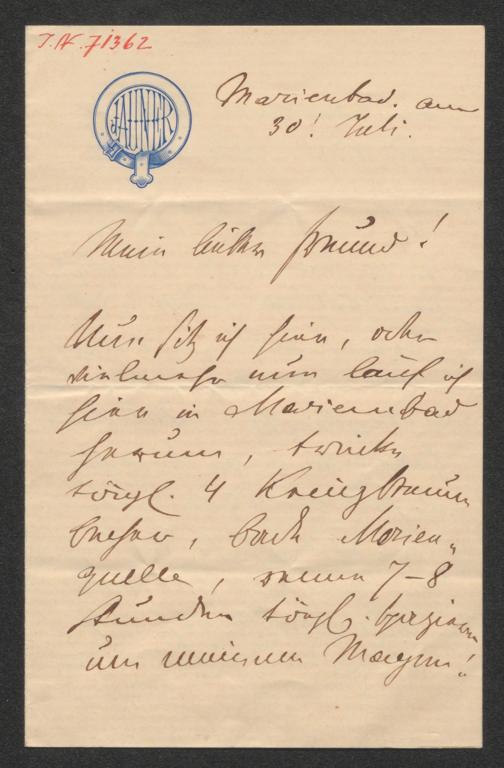 I.N. 71362
JAUNER
Marienbad. am
30! Juli.
Mein lieber Freund!
Nun sitz ich hier, oder
vielmehr nun lauf ich
hier in Marienbad
herum, trinke
tägl. 4 Kreuzbrunn
Becher, bade Marien„
quelle, renne 7–8
Stunden tägl. spazieren
um meinen Magen!